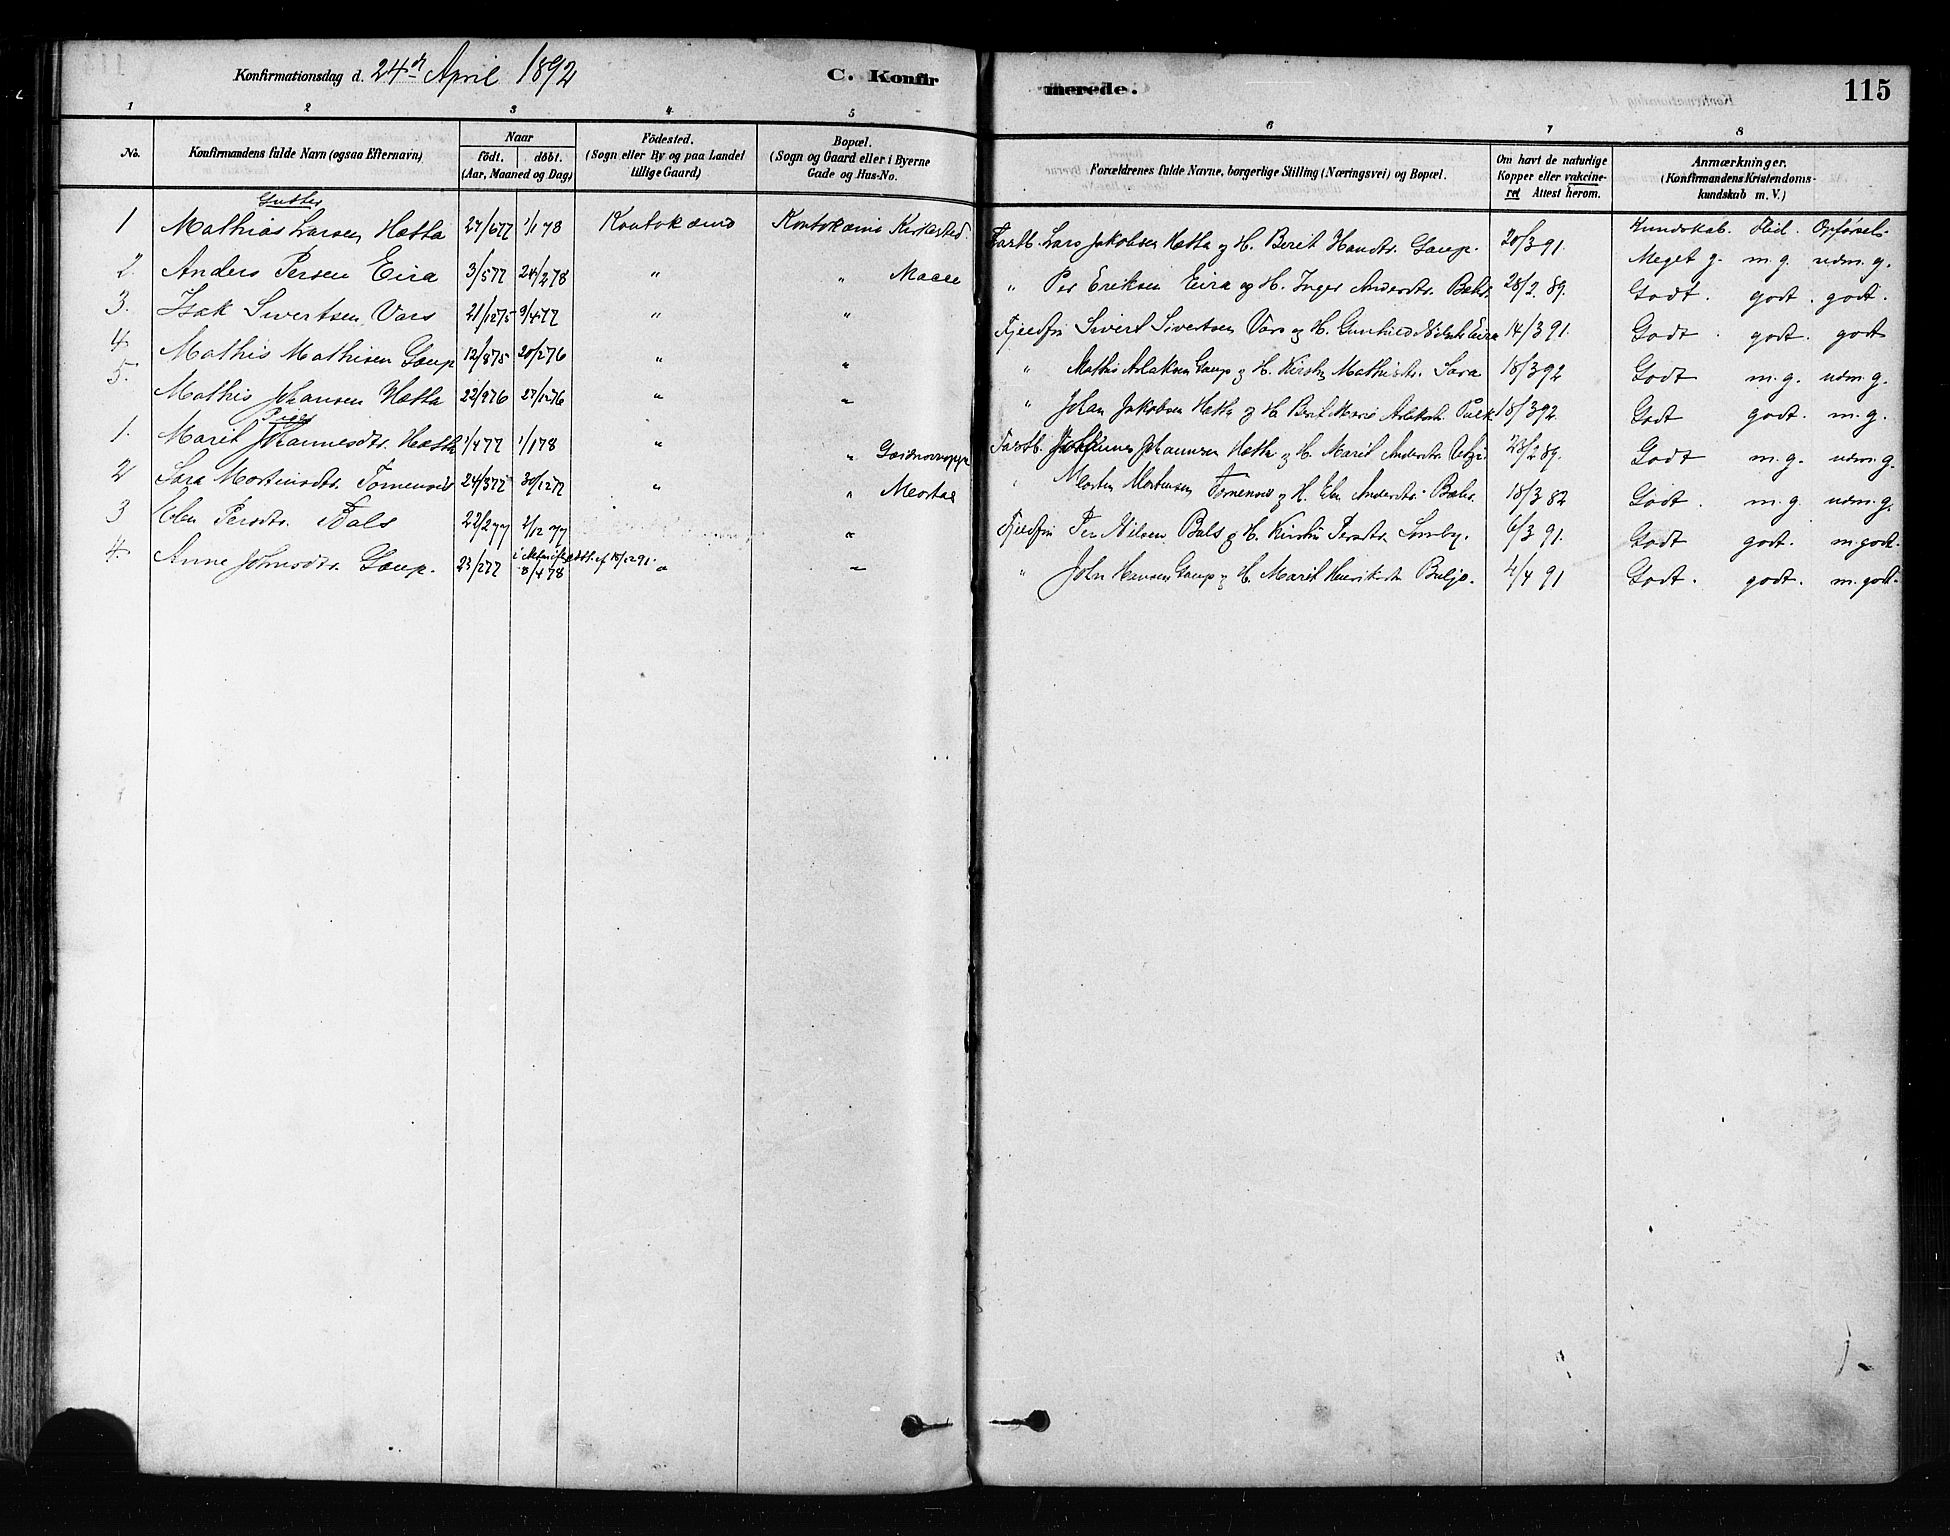 Konfirmationsdag d. 24de April 1892 C. Konfirmerede. 115
1 2 3 4 5 6 7 8
No. Konfirmandens fulde Navn (ogsaa Efternavn) Naar födt. döbt. (Aar, Maaned og Dag) Födested. (Sogn eller By og paa Landet tillige Gaard) Bopæl. (Sogn og Gaard eller i Byerne Gade og Hus-No. Forældrenes fulde Navne, borgerlige Stilling (Næringsvei) og Bopæl. Om havt de naturlige Kopper eller vakcineret Attest herom. Anmærkninger. (Konfirmandens Kristendomskundskab m. V.)
Gutter
Kundskab. Flid. Opførsel.
1 Mathias Larsen Hætta 27/6 77 1/1 78 Koutokæino Koutokæino Kirkested. Fastb. Lars Jakobsen Hætta og H. Berit Hansdtr. Gaup. 20/3 91. Meget g. m. g. udm. g.
2. Anders Persen Eira 3/5 77 24/2 78 " " Maace " Per Eriksen Eira og H. Inger Andersdtr. Bæhr. 28/2 89. Godt. godt. godt.
3. Isak Sivertsen Vars 21/12 75 9/4 77 " " Fjeldfin Sivert Sivertsen Vars og H. Gunhild Nilsdtr Eira 14/3 91. Godt godt. godt
4. Mathis Mathisen Gaup 12/8 75 20/2 76 " " " Mathis Aslaksen Gaup og H. Kirsten Mathisdtr. Sara 18/3 92 Godt m. g. udm. g.
5. Mathis Johansen Hætta 22/9 76 27/12 76 " " " Johan Jakobsen Hætta og H. Berit Marie Aslaksdtr. 18/3 92. Godt godt. m. g.
Piger
1. Marit Johannesdtr. Hætta 1/4 77 1/1 78 " " Fastb. Johannes Johannsen Hætta og H. Marit Andersdtr. 28/2 89. Godt m. g. udm. g.
2 Sara Mortensdtr. Tornensis 24/3 77 30/12 77 " " " Morten Mortensen Tornensis og H. Elen Andersdtr. Bæhr. 18/3 82 Godt. m. g. udm. g.
3 Elen Persdtr. Bals 22/2 77 2/12 77 " Fjeldfin Per Nilsen Bals og H. Kirstin Persdtr. 6/3 91. Godt godt. m. godt.
4. Anne Johnsdtr. Gaup. 23/2 77 8/4 78 " " " John Hansen Gaup og H. Marit Henriksdtr Buljo. 4/4 91 Godt. godt. m. godt.